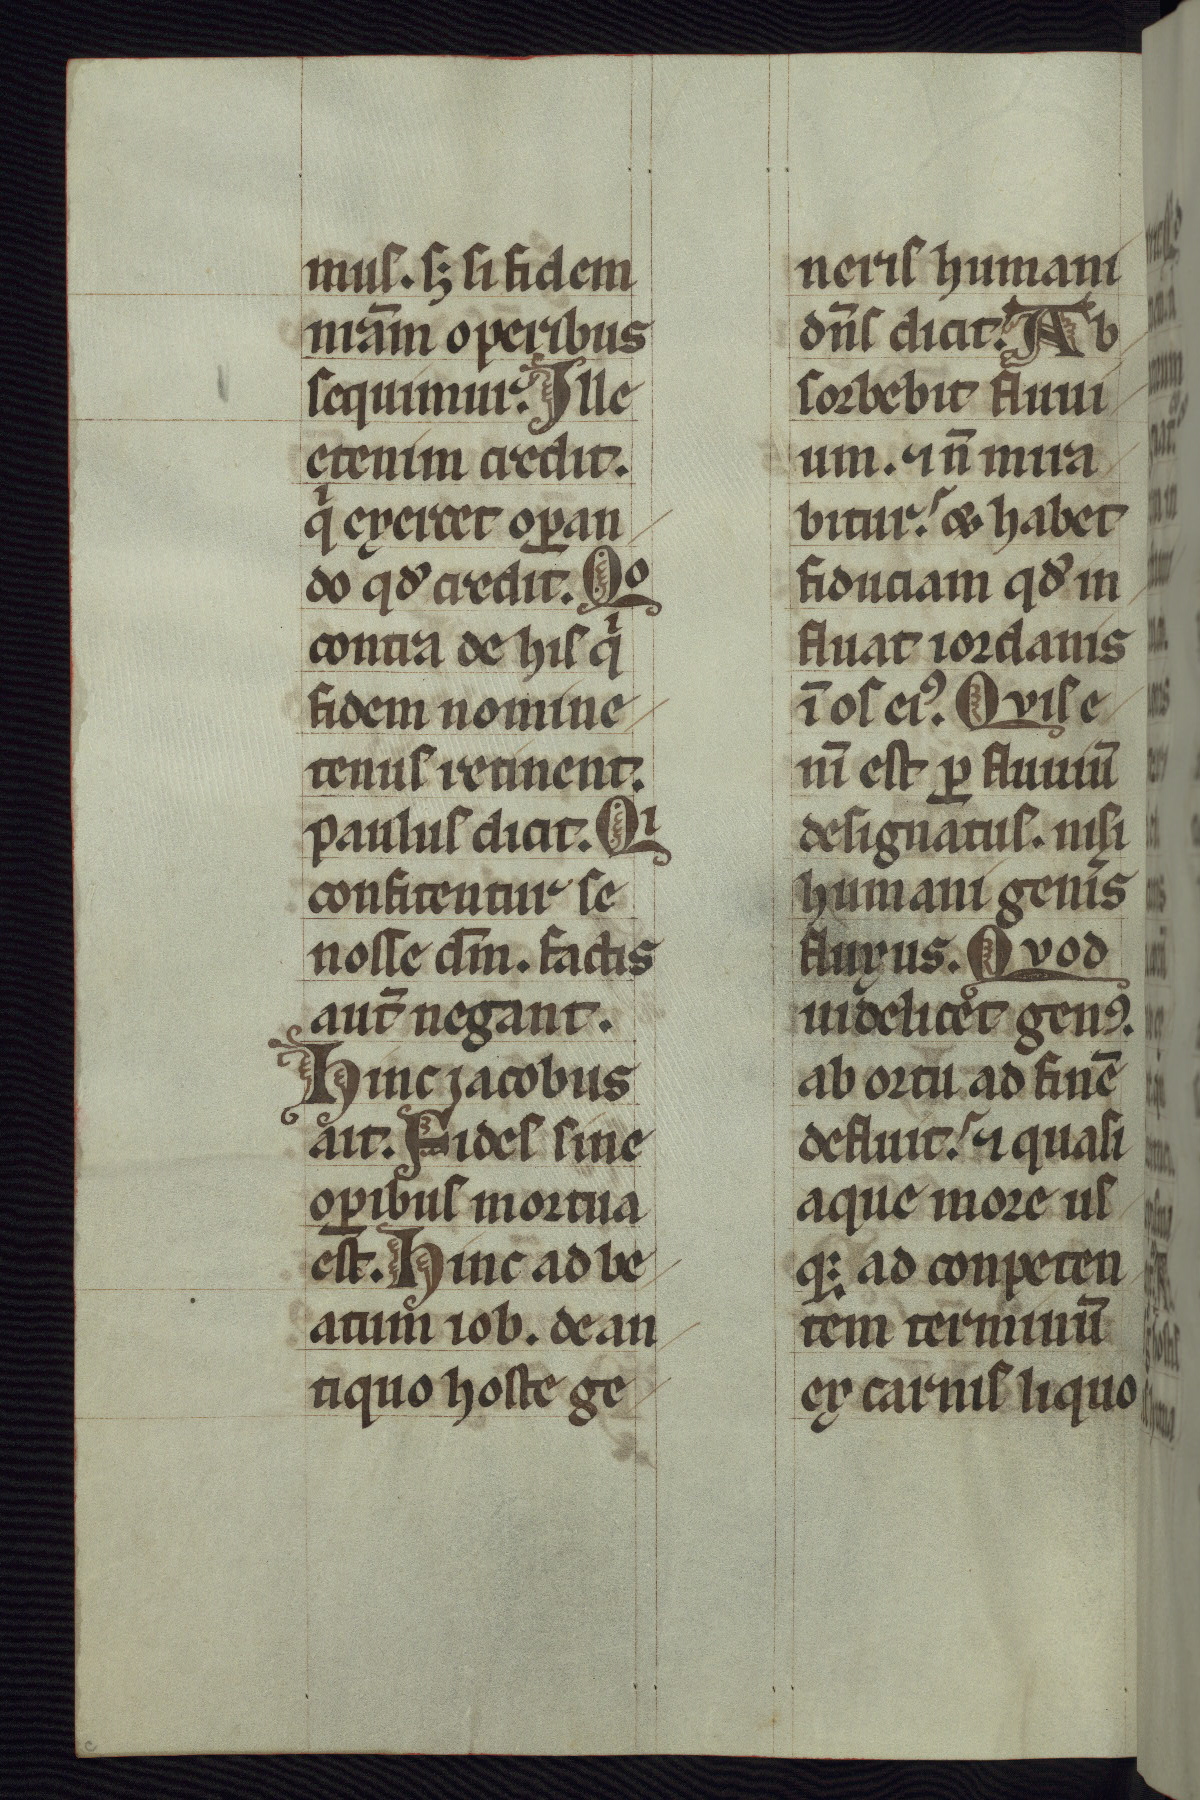 mus. sꝫ si fidem
nr̄am operibus
sequimur. Ille
etenim credit.
qͥ exercet oꝑan
do qđ credit. Qo
contra de his qͥ
fidem nomine
tenus retinent.
paulus dicit. Qi
confitentur se
nosse dm̄. factis
aut̄ negant.
Hinc jacobus
ait. Fides sine
oꝑibus mortua
est̄. Hinc ad be
atum iob. de an
tiquo hoste ge
neris humani
dn̄s dicit. Ab
sorbebit fluui
um. ⁊ n̄ mira
bitur. & habet
fiduciam qđ in
fluat iordanis
ī os eiꝰ. Qvis e
nī est ꝑ fluuiū
designatus. nisi
humani genīs
fluxus. Qvod
uidelicet genꝰ.
ab ortu ad finē
defluit. ⁊ quasi
aque more us
qꝫ ad conpeten
tem terminū
ex carnis liquo